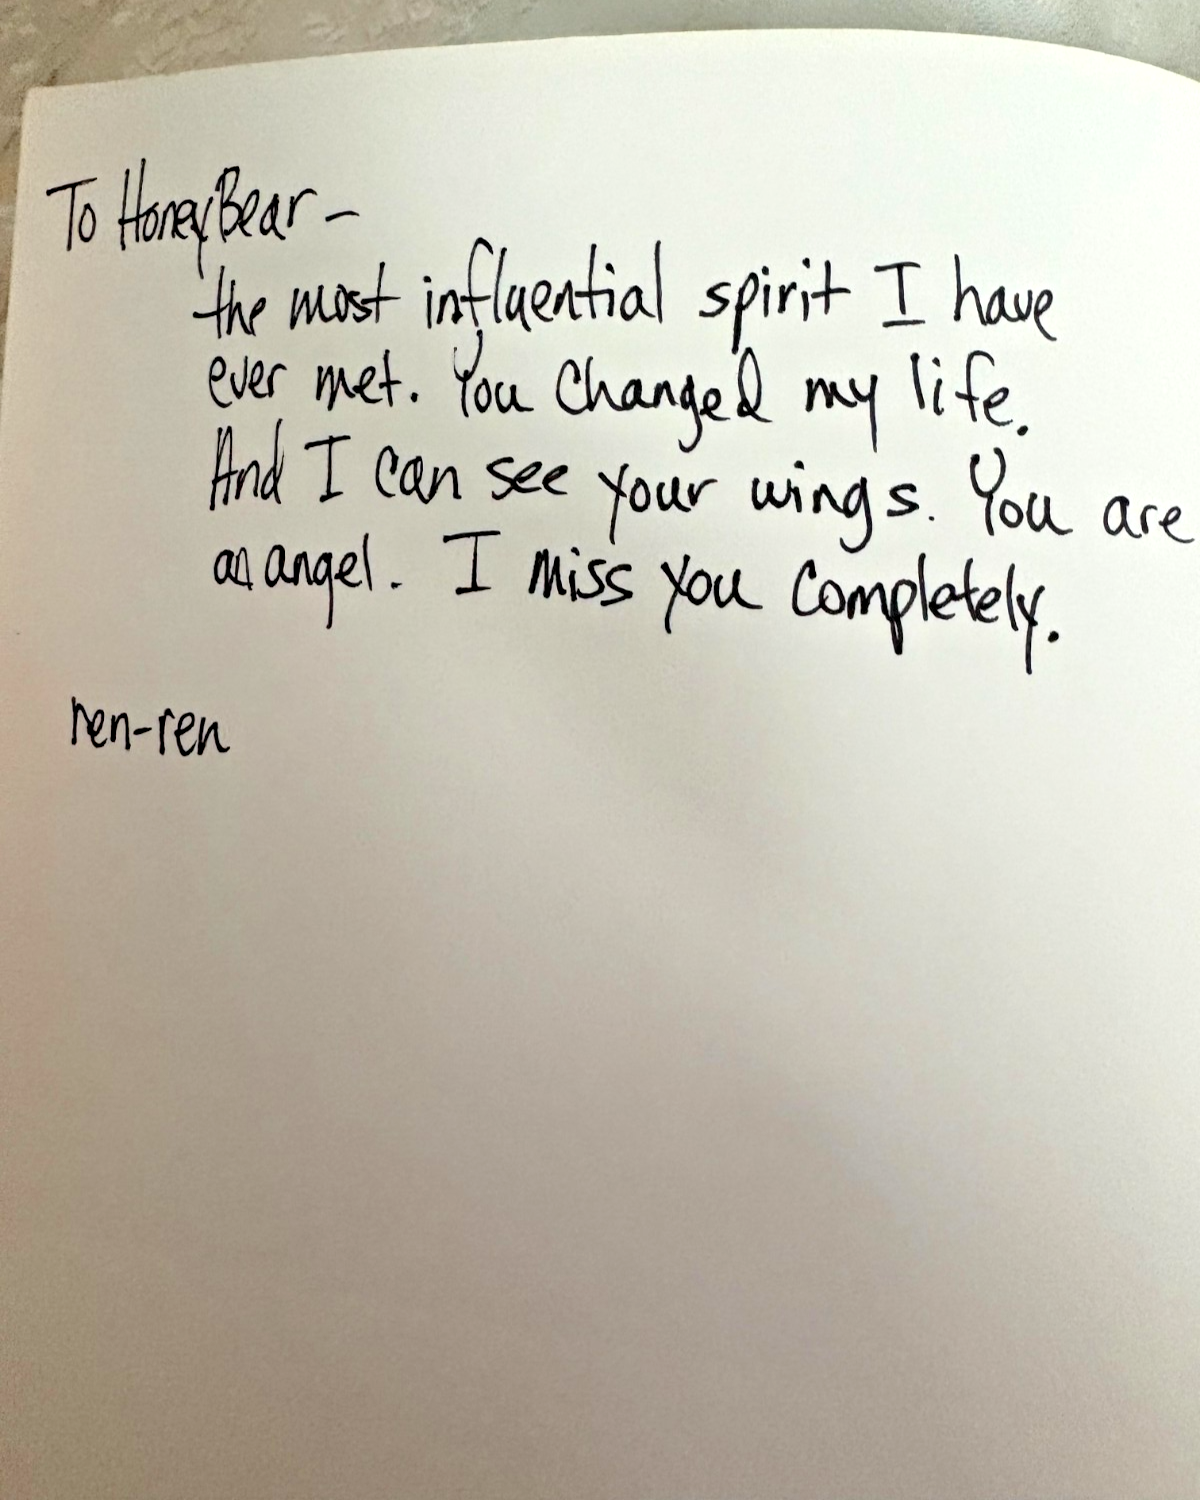 To HoneyBear –
the most influential spirit I have
ever met. You Changed my life.
And I can see your wings. You are
an angel. I miss you Completely.
ren-ren